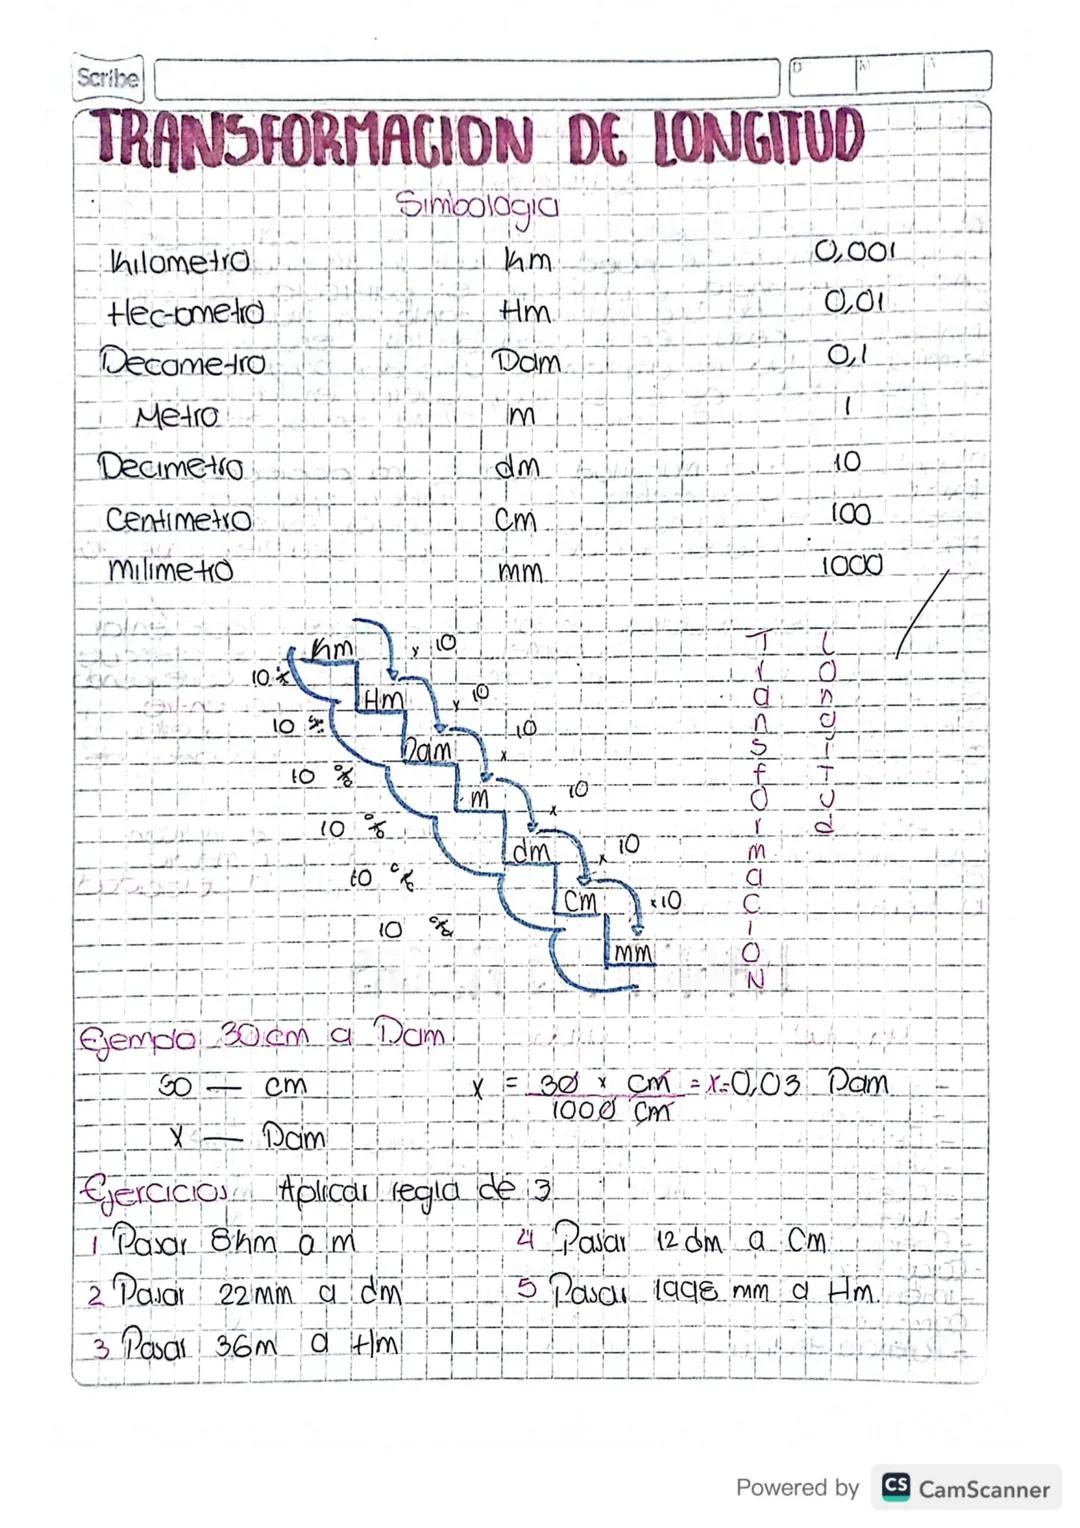 Scribe
D M A
TRANSFORMACION DE LONGITUD
Simbologia
Kilometro Km 0,001
Hectometro Hm 0,01
Decametro Dam 0,1
Metro m 1
Decimetro dm 10
Centimetro Cm 100
Milimetro mm 1000
Km x 10
10 %
Hm x 10
10 %
Dam x 10
10 %
m x 10
10 %
dm x 10
10 %
Cm x10
10 %
mm
Transformacion
Longitud
Ejemplo 30 cm a Dam
30 — cm x = 30 x cm = x=0,03 Dam
1000 cm
X — Dam
Ejercicios Aplicar regla de 3
1 Pasar 8km a m
4 Pasar 12 dm a Cm
2 Pasar 22mm a dm
5 Pasar 1998 mm a Hm.
3 Pasar 36m a Hm
Powered by CS CamScanner